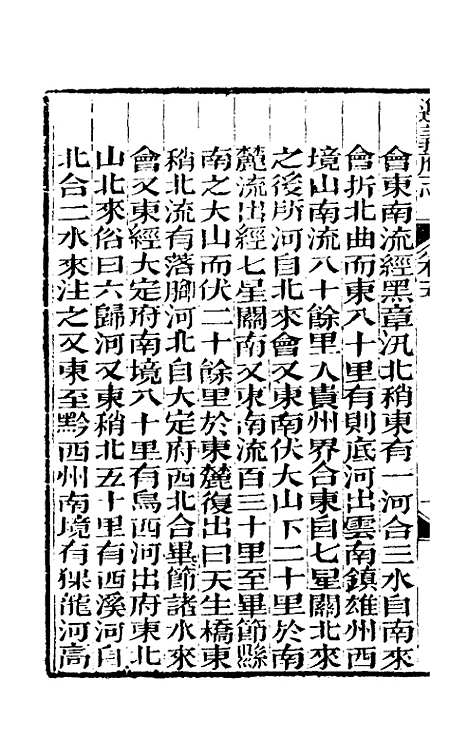 遵義府志 卷五
會東南流經黑章汛北稍東有一河合三水自南來
會折北曲而東八十里有則底河出雲南鎮雄州西
境山南流八十餘里入貴州界合東自七星關北來
之後所河自北來會又東南伏大山下二十里於南
麓流出經七星關南又東南流百三十里至畢節縣
南之大山而伏二十餘里於東麓復出曰天生橋東
稍北流有落腳河北自大定府西北合畢節諸水來
會又東經大定府南境八十里有烏西河出府東北
山北來俗曰六歸河又東稍北五十里有西溪河自
北合二水來注之又東至黔西州南境有猓龍河高